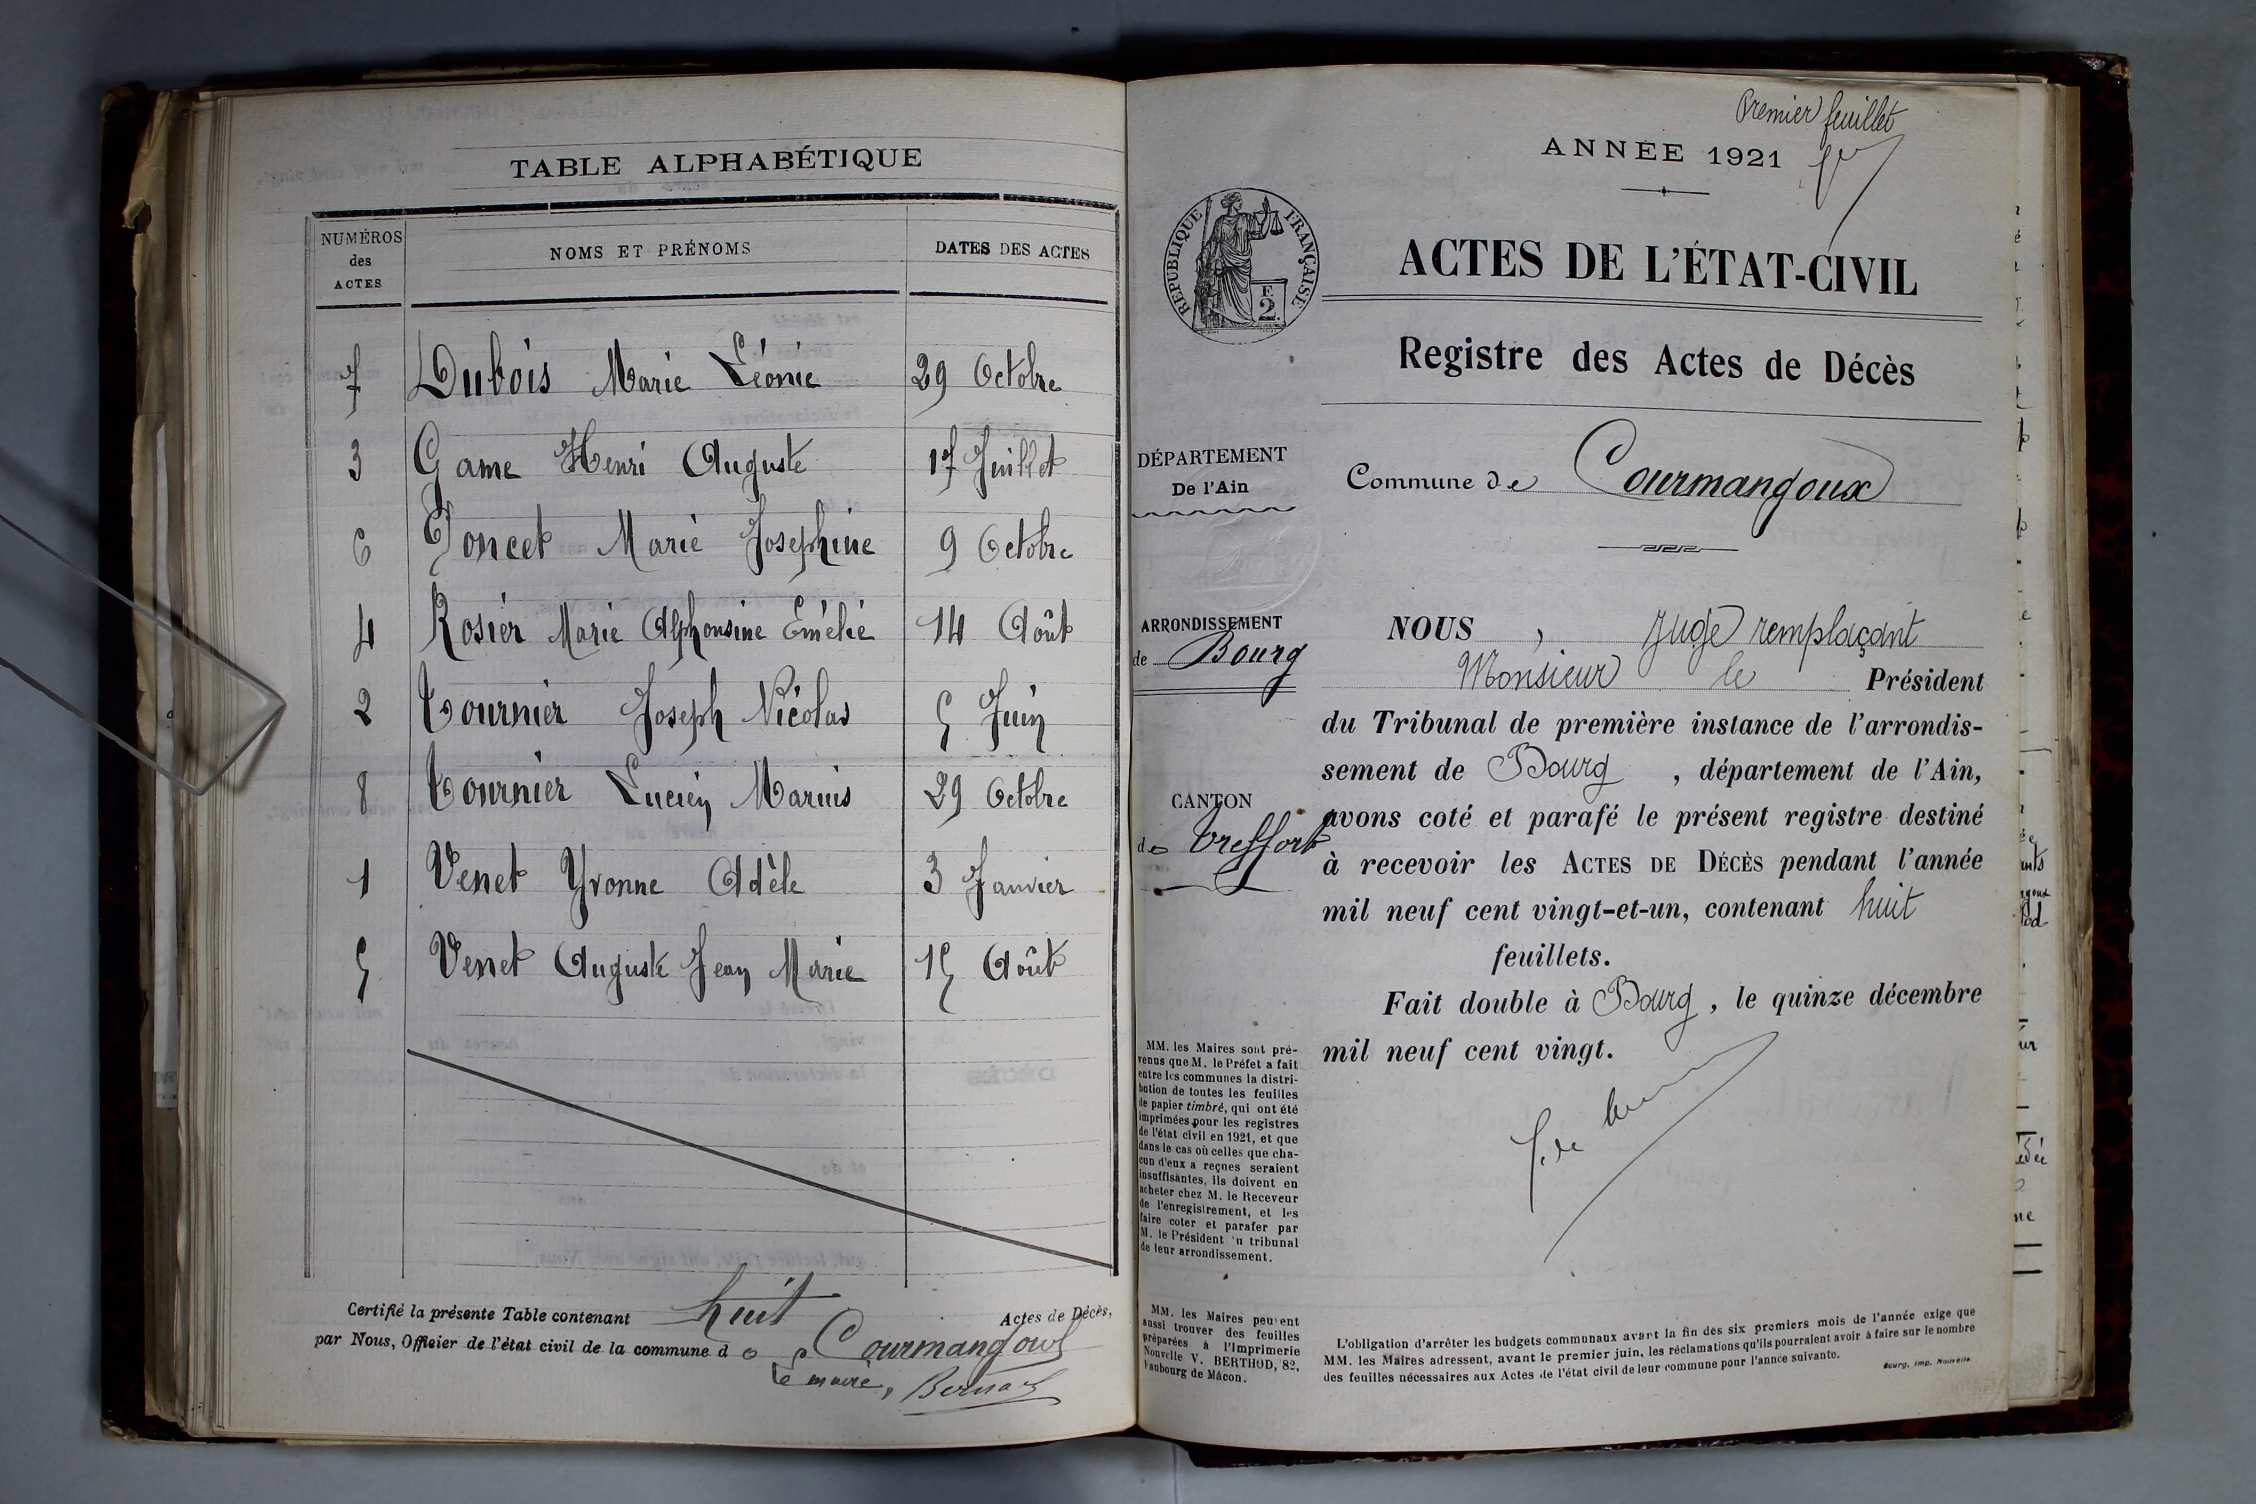 TABLE ALPHABÉTIQUE
NUMÉROS des ACTES NOMS ET PRÉNOMS DATES DES ACTES
7 Dubois Marie Léonie 29 Octobre
3 Game Henri Auguste 17 Juillet
6 Poncet Marie Josephine 9 Octobre
4 Rosier Marie Alphonsine Emélie 14 Août
2 Tournier Joseph Nicolas 5 Juin
8 Tournier Lucien Marius 29 Octobre
1 Venet Yvonne Adèle 3 Janvier
5 Venet Auguste Jean Marie 15 Août
Certifié la présente Table contenant huit Actes de Décès,
par Nous, Officier de l'état civil de la commune de Courmangoux
Le maire, Bernard
Premier feuillet
ANNÉE 1921
RÉPUBLIQUE FRANÇAISE
F
2.
ACTES DE L'ÉTAT-CIVIL
Registre des Actes de Décès
DÉPARTEMENT
De l'Ain
Commune de Courmangoux
ARRONDISSEMENT
de Bourg
CANTON
de Treffort
NOUS, Juge remplaçant
Monsieur le Président
du Tribunal de première instance de l'arrondis-
sement de Bourg, département de l'Ain,
avons coté et parafé le présent registre destiné
à recevoir les ACTES DE DÉCÈS pendant l'année
mil neuf cent vingt-et-un, contenant huit
feuillets.
Fait double à Bourg, le quinze décembre
mil neuf cent vingt.
MM. les Maires sont pré-
venus que M. le Préfet a fait
entre les communes la distri-
bution de toutes les feuilles
de papier timbré, qui ont été
imprimées pour les registres
de l'état civil en 1921, et que
dans le cas où celles que cha-
cun d'eux a reçues seraient
insuffisantes, ils doivent en
acheter chez M. le Receveur
de l'enregistrement, et les
faire coter et parafer par
M. le Président du tribunal
de leur arrondissement.
MM. les Maires peuvent
aussi trouver des feuilles
préparées à l'Imprimerie
Nouvelle V. BERTHOD, 82,
Faubourg de Mâcon.
L'obligation d'arrêter les budgets communaux avant la fin des six premiers mois de l'année exige que
MM. les Maires adressent, avant le premier juin, les réclamations qu'ils pourraient avoir à faire sur le nombre
des feuilles nécessaires aux Actes de l'état civil de leur commune pour l'année suivante.
Bourg, Imp. Nouvelle